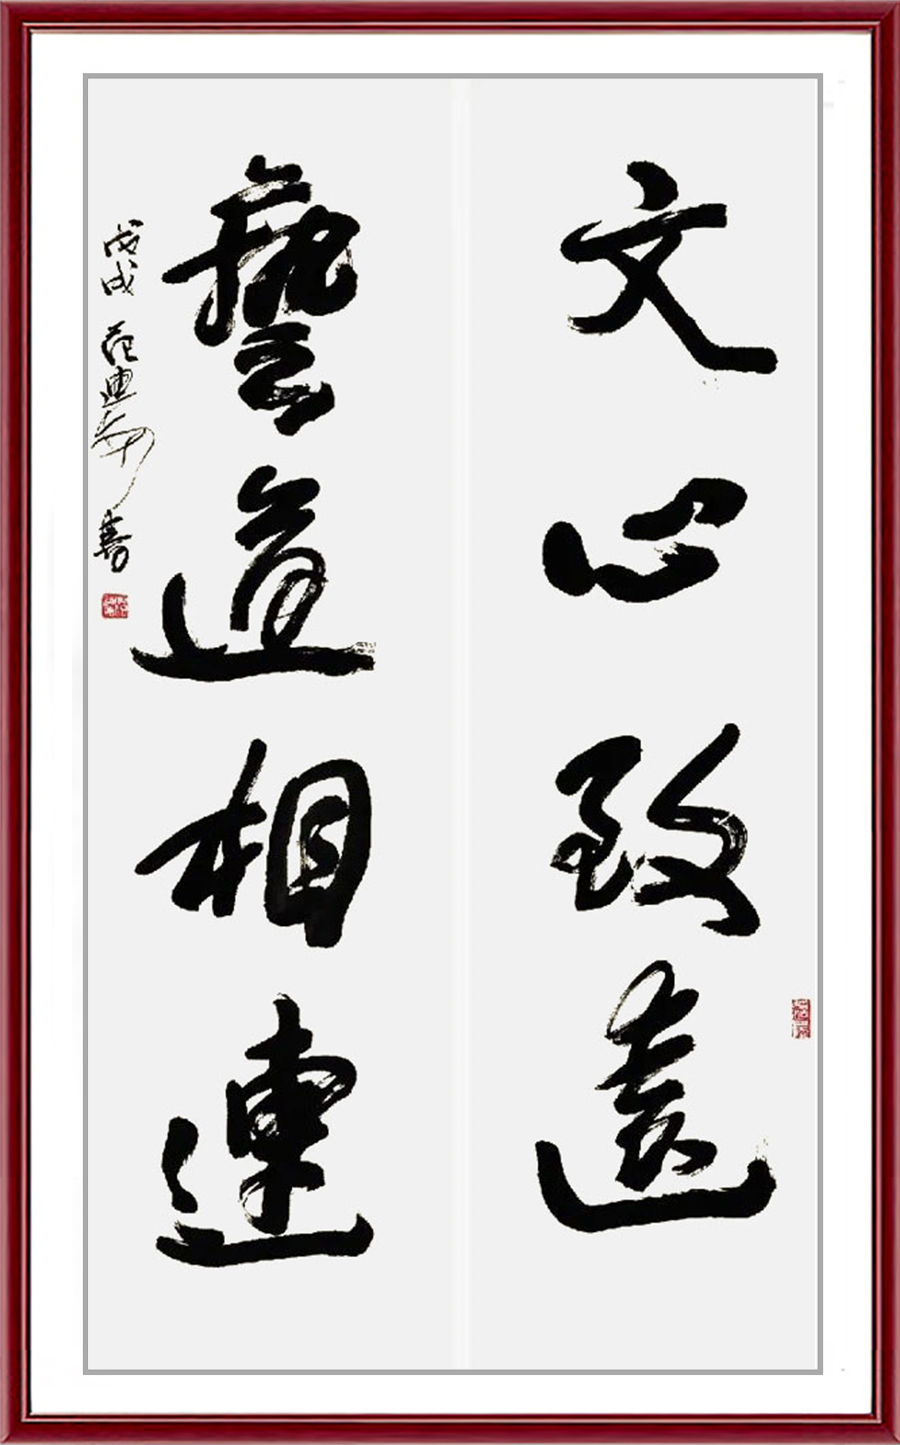 文心致遠
藝道相連
戊戌 范迪安書